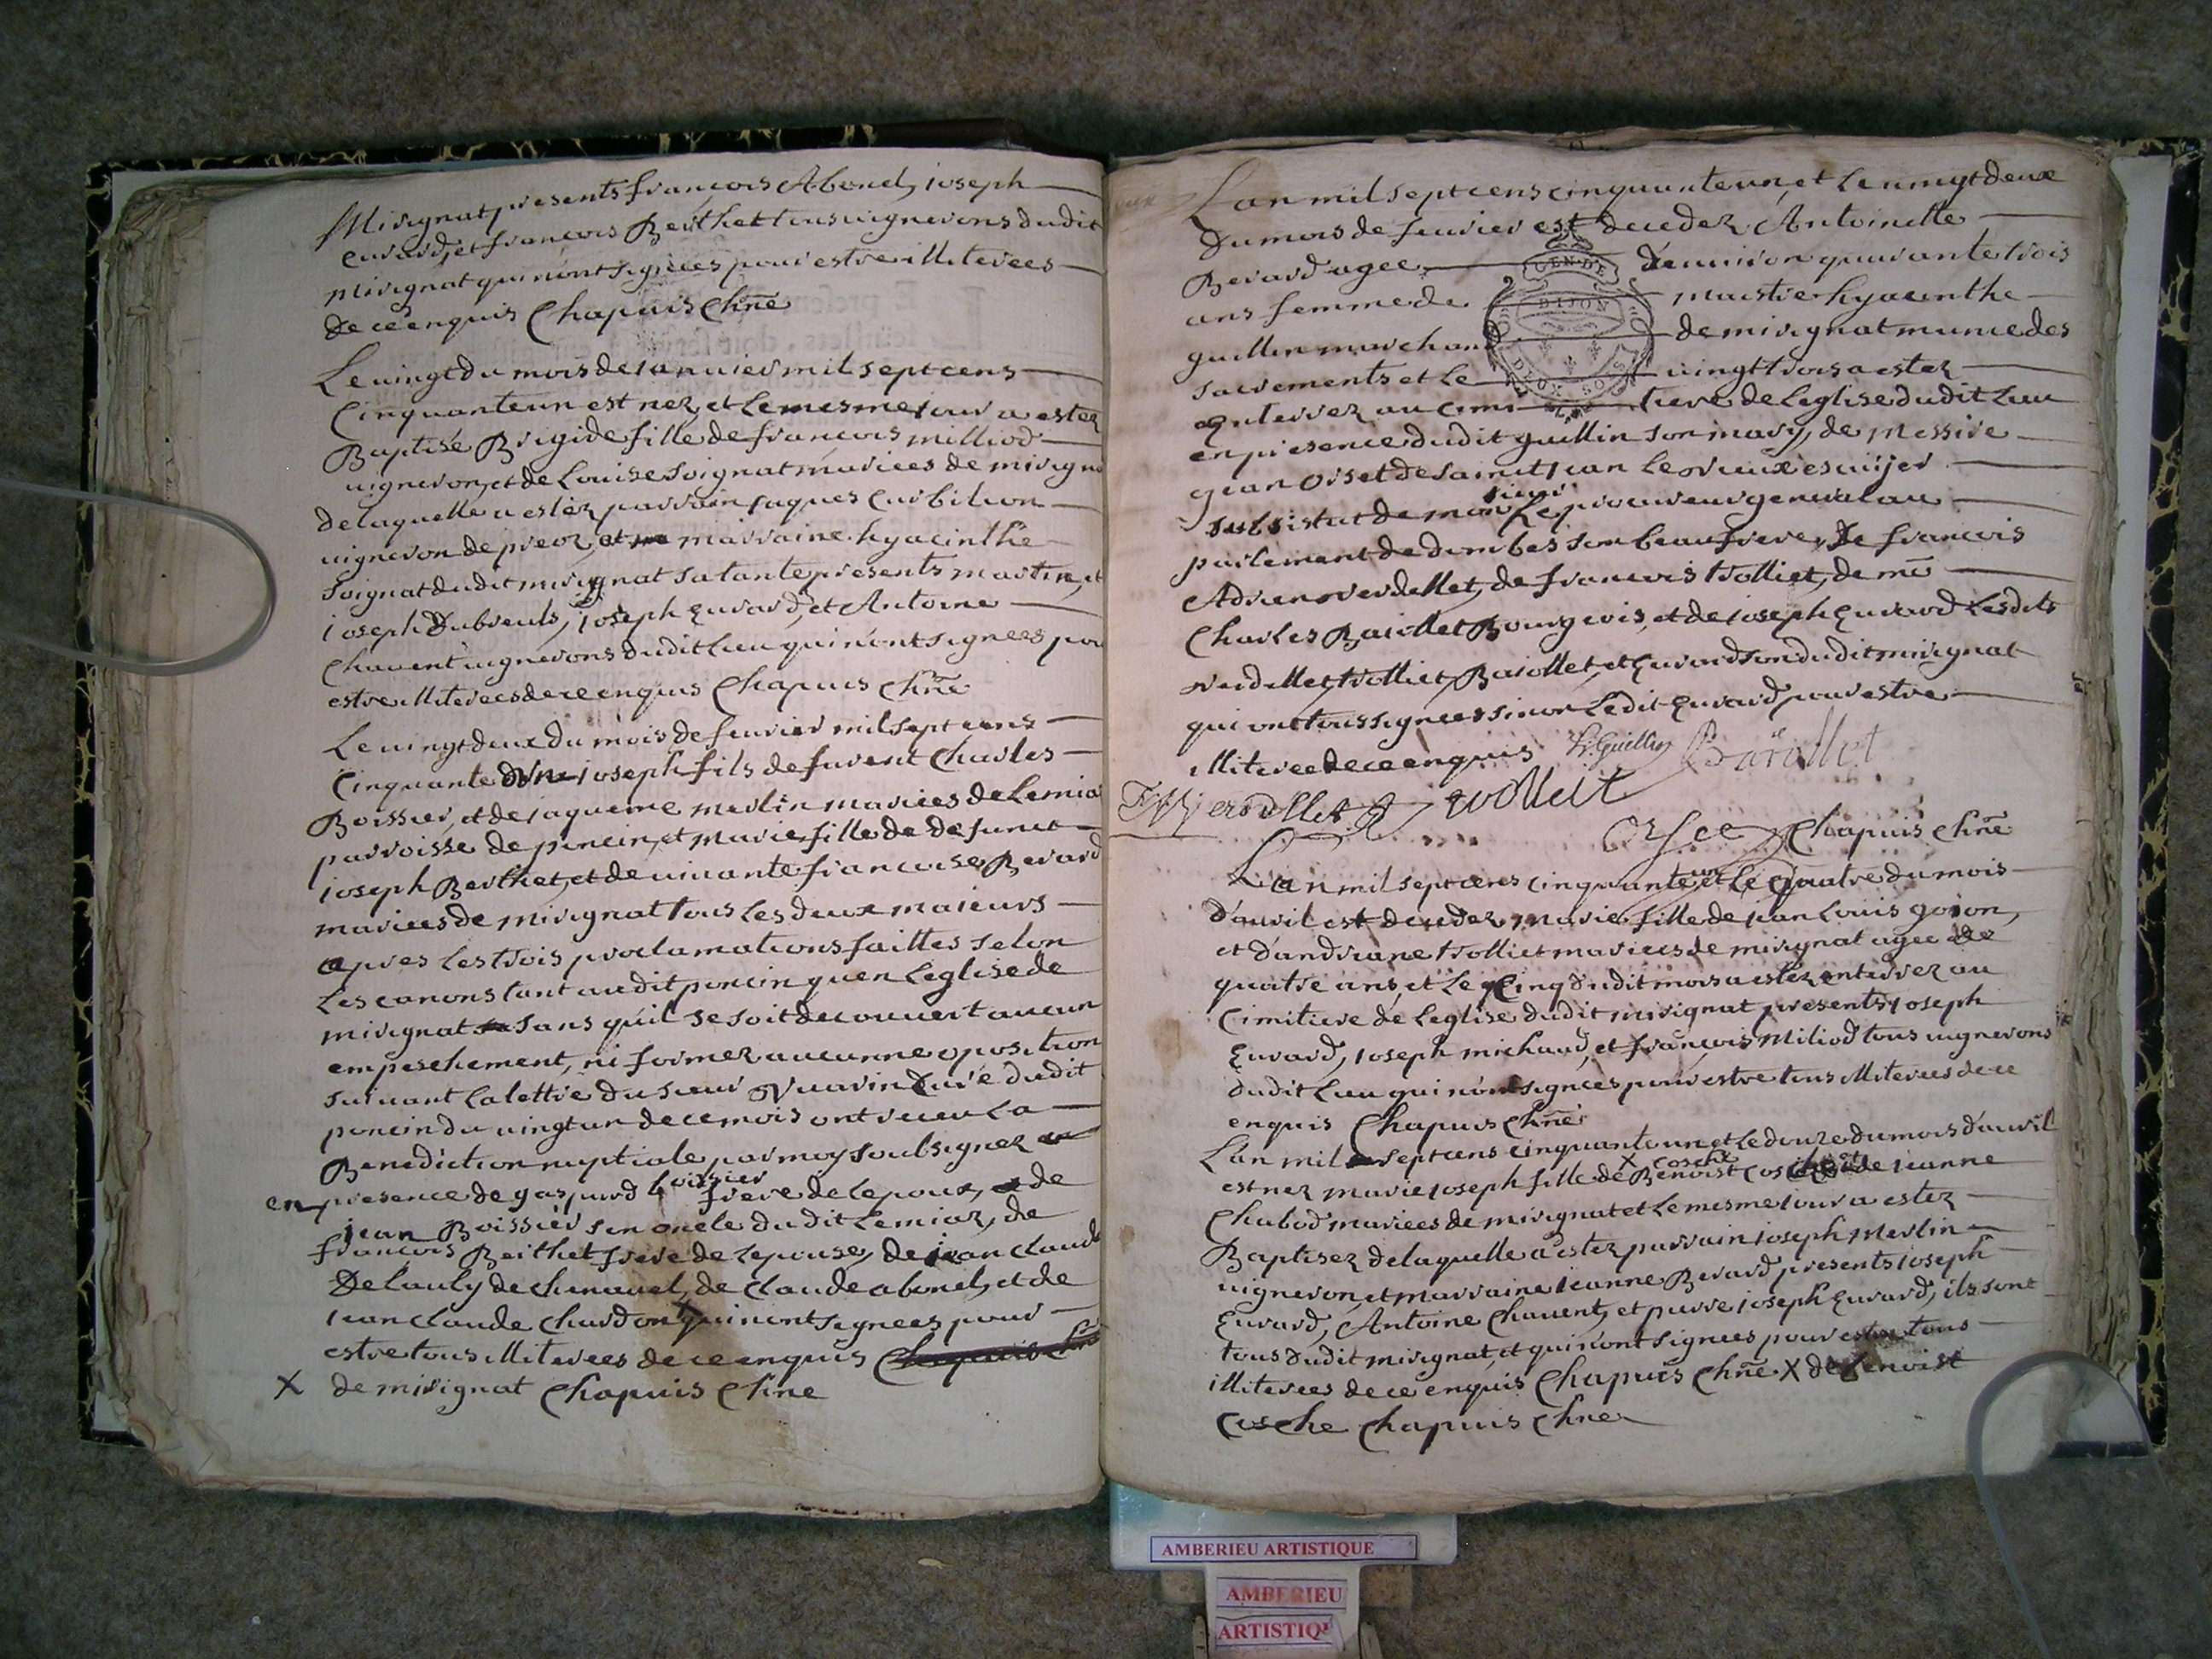 Mirignat presents françois Abonel, ioseph
euvard, et françois Berthet tous vignerons dudit
mirignat qui n'ont signées pour estre illiterees
de ce enquis Chapuis Chñe
Le vingt du mois de ianvier mil sept cens
Cinquante un est nez, et le mesme iour a estez
Baptisé Brigide fille de françois milliod
vigneron, et de Louise Soignat mariees de mirigna
de laquelle a estéz parrain iaques Curbilion
vigneron de preoz, et marraine hyacinthe
Soignat dudit mirignat sa tante presents martin, et
ioseph Dubreuls, ioseph euvard, et Antoine
Chavent vignerons dudit lieu qui n'ont signees pou
estre illiterees de ce enquis Chapuis Chñe
Le vingt deux du mois de feuvier mil sept cens
Cinquante une ioseph fils de furent Charles
Boissier, et de iaqueme merlin mariees de Lemia
parroisse de poncin, et marie fille de defunct
ioseph Berthet, et de vivante francoise Berard
mariees de mirignat tous les deux maieurs
apres les trois proclamations faittes selon
les canons tant audit poncin qu'en l'eglise de
mirignat sans qu'il se soit decouvert aucun
empeschement, ni former aucunne oposition
suivant la lettre du sieur Vuarin Curé dudit
poncin du vingt un de ce mois ont receu la
Benediction nuptiale par moy soulsignez
en presence de gaspard boissier frere de lepoux, de
jean Boissier son oncle dudit Lemiaz, de
françois Berthet frere de lepouse, de jean claude
Delauly de chenavel, de Claude abonel, et de
iean Claude Chardon qui n'ont signees pour
estre tous illiterees de ce enquis Chapuis Chñe
X de mirignat Chapuis Chne
L'an mil sept cens cinquante un, et le vingt deux
du mois de feuvier est decedez Antoinette
Berard agee d'environ quarante trois
ans femme de maistre hyacinthe
guillin marchand de mirignat munie des
sacrements et le vingt trois a estez
enterrez au cimitiere de l'eglise dudit lieu
en presence dudit guillin son mary, de messire
jean orset de sainct jean le vieux escuijer
substitut de monsieur le procureur general au
parlement de dombes son beaufrere, de francois
Adrien verdellet, de francois trolliet, de mē
Charles Barollet Bourgeois, et de ioseph Euvard lesdits
verdellet, trolliet, Barollet, et Euvard son dudit mirignat
qui ont tous signees sinon ledit Euvard pour estre
illiteree de ce enquis h. Guillin Barollet
verdellet trolliet
Orset Chapuis Chñe
L'an mil sept cens cinquante un et le quatre du mois
d'avril est decedez marie fille de iean Louis goion,
et d'andreane trolliet mariees de mirignat agee de
quatre ans, et le Cinq dudit mois a estéz enterrez au
Cimitiere de l'eglise dudit mirignat presents ioseph
Euvard, ioseph michaud, et françois Miliod tous vignerons
dudit lieu qui n'ont signees pour estre tous illiterees de ce
enquis Chapuis Chñe
L'an mil sept cens cinquante un, et le douze du mois d'avril
est nez marie ioseph fille de X Benoist cosche et de ieanne
Chabod mariees de mirignat et le mesme iour a estez
Baptisez de laquelle a estez parrain ioseph Merlin
vigneron, et marraine ieanne Berard presents ioseph
Euvard, Antoine Chavent, et pierre ioseph Euvard, ils sont
tous dudit mirignat, et qui n'ont signees pour estre tous
illiterees de ce enquis Chapuis Chñe X de benoist
Cosche Chapuis Chne
GEN. DE
DIJON
DEUX SOLS
AMBERIEU ARTISTIQUE
AMBERIEU
ARTISTIQ